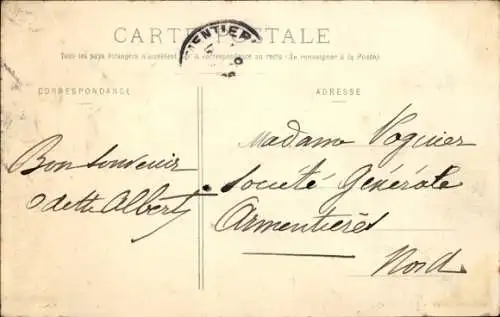 CARTE POSTALE
MENTIER
Tous les pays étrangers n'acceptent pas la correspondance au recto (Se renseigner à la Poste)
CORRESPONDANCE
ADRESSE
Madame Voguier
Société Générale
Armentières
Nord
Bon souvenir
Odette Albert